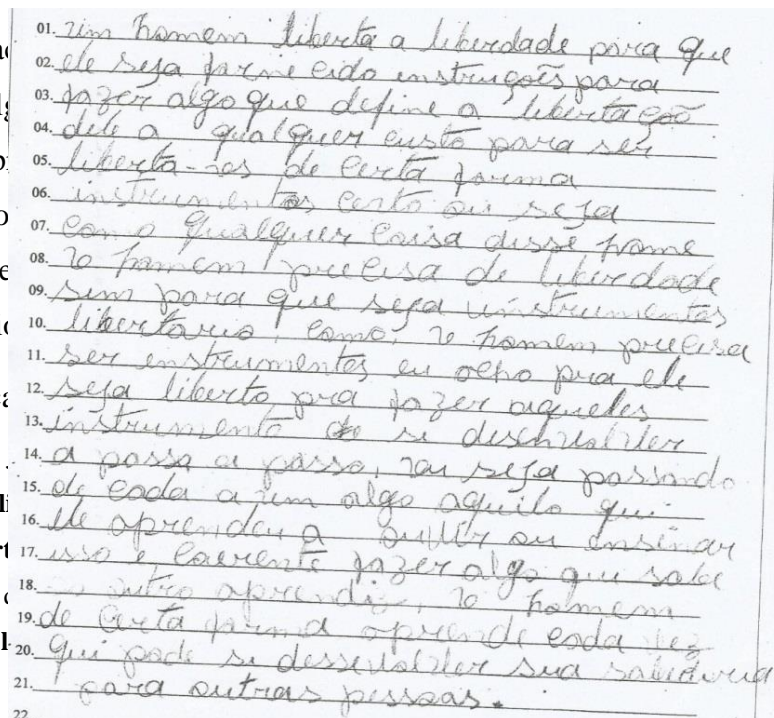 01. um homem liberta a liberdade para que
02. ele seja forne cido instruções para
03. fazer algo que define a libertação
04. dele a qualquer custo para ser
05. liberta-nos de certa forma
06. instrumentos certo ou seja
07. como qualquer coisa disse home
08. o homem precisa de liberdade
09. sim para que seja instrumentos
10. libertario, como, o homem precisa
11. ser enstrumentos eu olho pra ele
12. seja liberto pra fazer aqueles
13. instrumento de si desenvolver
14. a passo a passo, ou seja passando
15. de cada a um algo aquilo qui
16. ele aprendeu a ou ensinar
17. isso e coerente fazer algo qui sabe
18. outro aprendiz, o homem
19. de certa forma aprende cada vez
20. qui pode si dessevolver sua sabeduria
21. para outras pessoas.
22